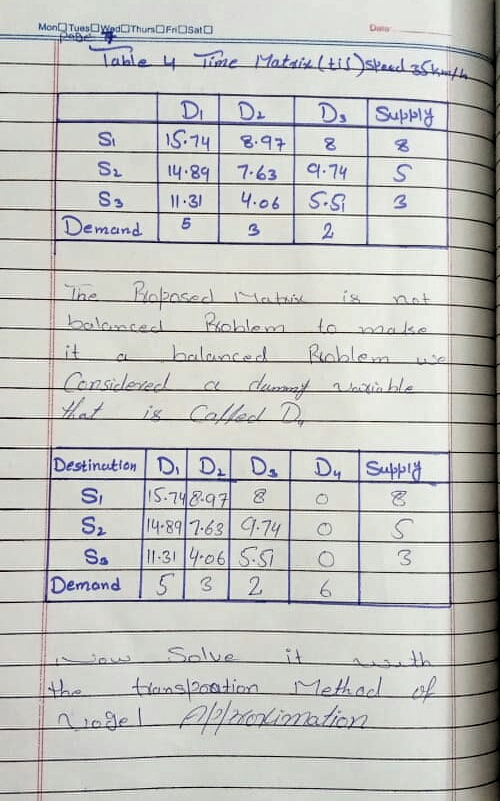 Mon☐Tues☐Wed☐Thurs☐Fri☐Sat☐ Date
Table 4 Time Matrix (tis) speed 35km/h
D1 D2 D3 Supply
S1 15.74 8.97 8 8
S2 14.89 7.63 9.74 5
S3 11.31 4.06 5.51 3
Demand 5 3 2
The Proposed Matrix is not
balanced Problem to make
it a balanced Problem we
Considered a dummy variable
that is Called D4
Destination D1 D2 D3 D4 Supply
S1 15.74 8.97 8 0 8
S2 14.89 7.63 9.74 0 5
S3 11.31 4.06 5.51 0 3
Demand 5 3 2 6
Now Solve it with
the transpoation Method of
Vogel Approximation